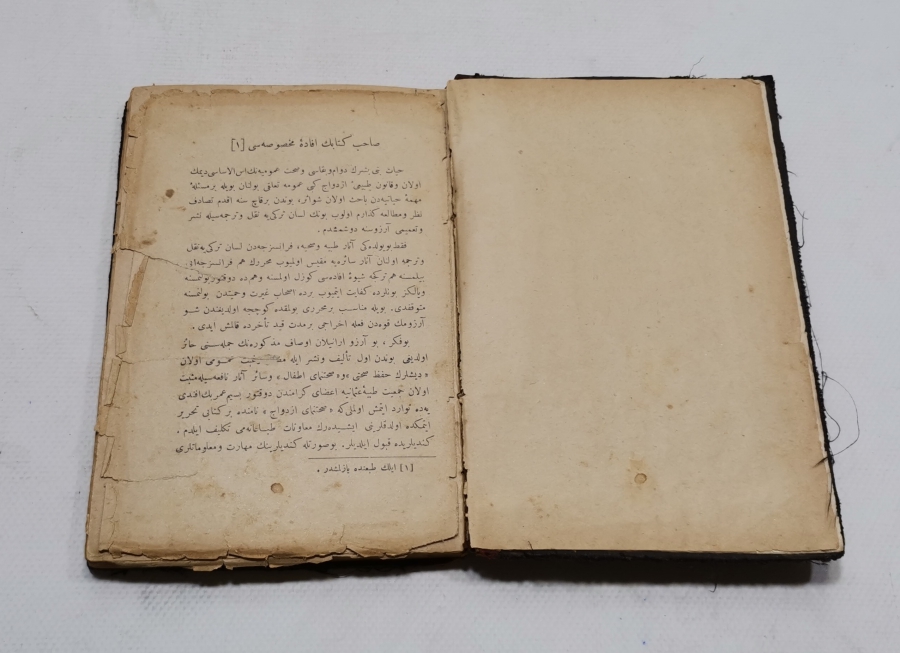 صاحب كتابك افادۀ مخصوصه‌سی [١]
حیات بنی بشرك دوام و بقاسی وصحت عمومیه‌نك اس الاساسی دیمك
اولان وقانون طبیعیٔ ازدواج كبی عمومه تعلقی بولنان بویله برمسئلۀ
مهمۀ حیاتیه‌دن باحث اولان شو اثر، بوندن برقاچ سنه اقدم تصادف
نظر ومطالعه كذارم اولوب بونك لسان تركی‌یه نقل وترجمه‌سیله نشر
وتعمیمی آرزوسنه دوشمشدم .
فقط بویولده‌كی آثار طبیه وصحیه، فرانسزجه‌دن لسان تركی‌یه نقل
وترجمه اولنان آثار سائره‌یه مقیس اولمیوب محررك هم فرانسزجه
بیلمسنه هم تركجه شیوۀ افاده‌سی كوزل اولمسنه وهم‌ده دوقتور بولنمسنه
ویالكز بونلرده كفایت ایتمیوب برده اصحاب غیرت وحمیتدن بولنمسنه
متوقفدی. بویله مناسب برمحرری بولمقده كوچجه اولدیغندن شو
آرزومك قوه‌دن فعله اخراجی برمدت قید تأخرده قالمش ایدی .
بوفكر ، بو آرزو ارانیلان اوصاف مذكوره‌نك جمله‌سنی حائز
اولدیغی بوندن اول تألیف ونشر ایله عمومی اولان
« دیشلرك حفظ صحتی » و « صحتنمای اطفال » وسائر آثار نافعه‌سیله مثبت
اولان جمعیت طبیۀ عثمانیه اعضای كرامندن دوقتور بسیم عمر بك افندی
یه‌ده توارد ایتمش اولملی كه « صحتنمای ازدواج » نامنده بركتابی تحریر
ایتمكده اولدقلرینی ایشیده‌رك معاونات طباعانه‌می تكلیف ایلدم .
كندیلریده قبول ایلدیلر. بوصورتله كندیلرینك مهارت ومعلوماتلری
[١] ایلك طبعنده یازلمشدر .